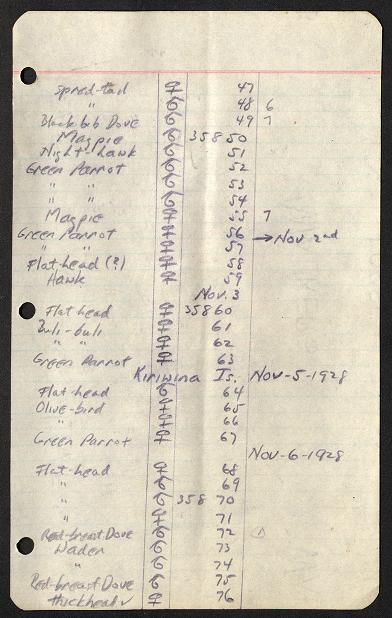 Spred-tail ♀ 47
" ♂ 48 6
Black bib Dove ♂ 49 7
Magpie ♂ 358 50
Night-hawk ♂ 51
Green Parrot ♂ 52
" " ♂ 53
" " ♂ 54
Magpie ♀ 55 7
Green Parrot ♀ 56 → Nov 2nd
" " ♀ 57
Flat-head (?) ♀ 58
Hawk ♀ 59
Nov. 3
Flat-head ♀ 358 60
Buli-buli ♀ 61
" " ♀ 62
Green Parrot ♀ 63
Kiriwina Is. Nov-5-1928
Flat-head ♂ 64
Olive-bird ♀ 65
" ♀ 66
Green Parrot ♀ 67
Nov-6-1928
Flat-head ♀ 68
" ♂ 69
" ♂ 358 70
" ♀ 71
Red-breast Dove ♂ 72
Wader ♂ 73
" ♂ 74
Red-breast Dove ♂ 75
thickhead ✓ ♀ 76